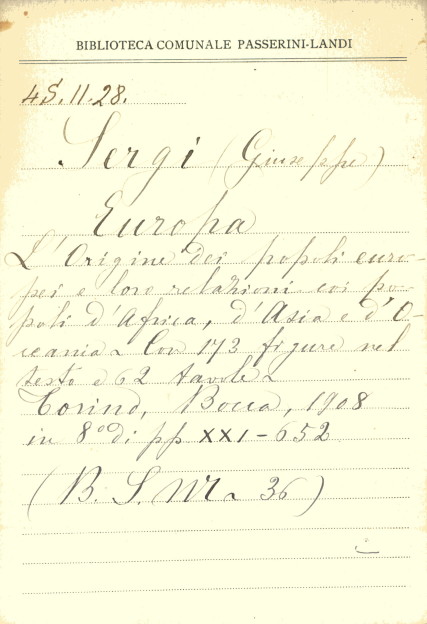 BIBLIOTECA COMUNALE PASSERINI-LANDI
4S.11.28.
Sergi (Giuseppe)
Europa
L'Origine dei popoli euro-
pei e loro relazioni coi po-
poli d'Africa, d'Asia e d'O-
ceania - Con 173 figure nel
testo e 62 tavole -
Torino, Bocca, 1908
in 8° di pp XXI-652
(B. S. M. - 36)